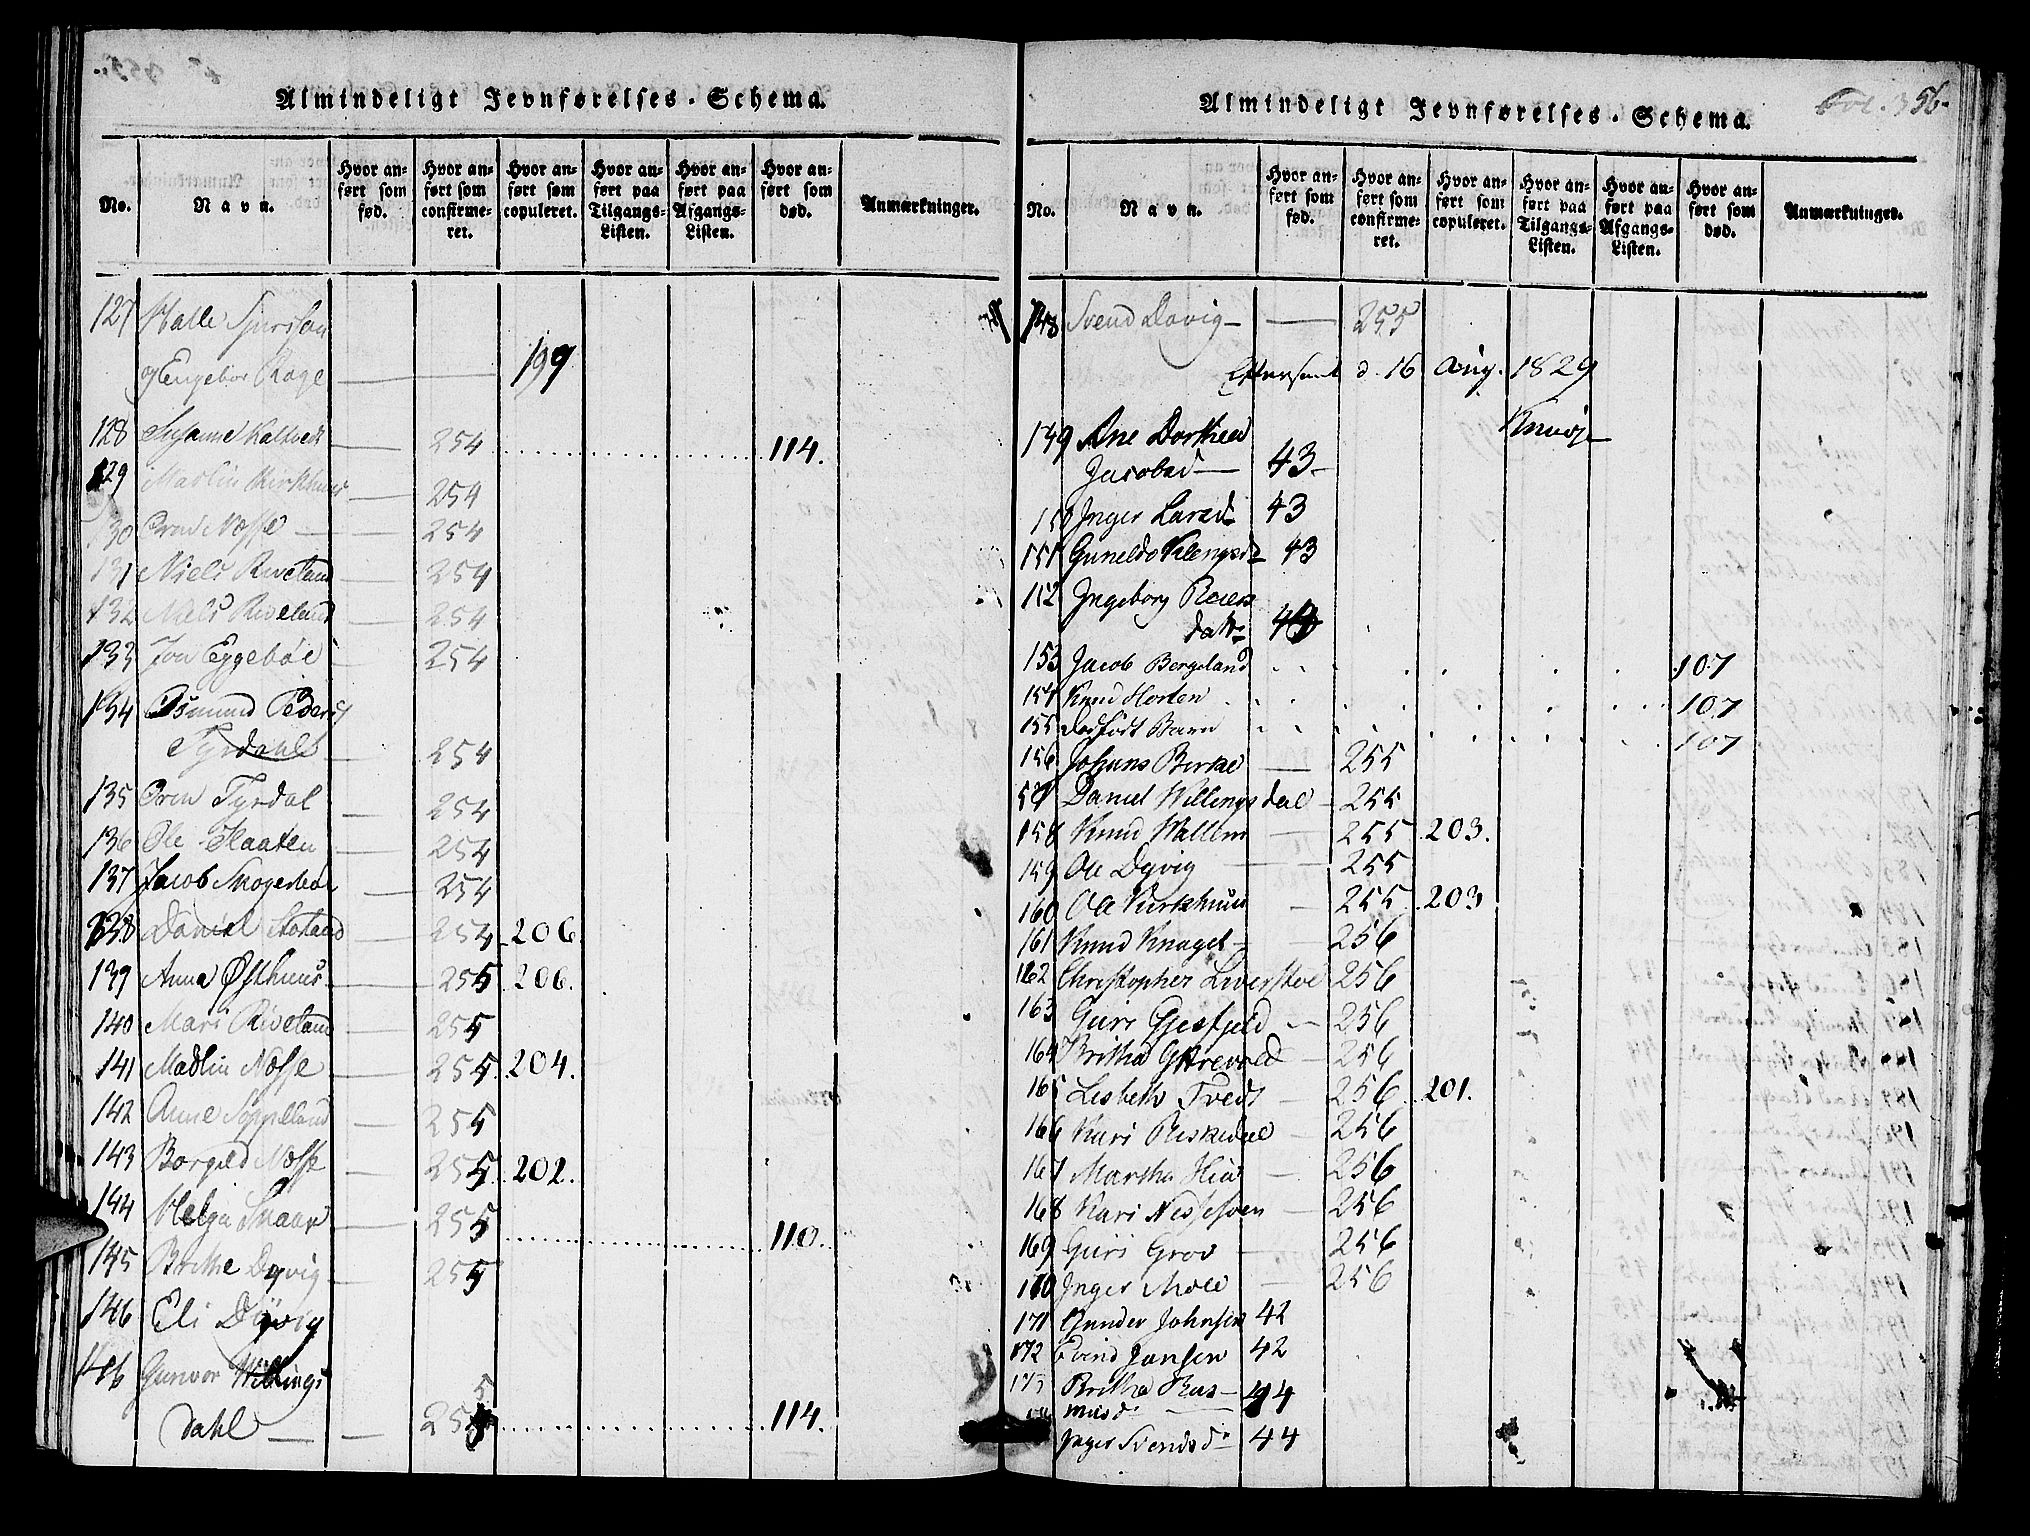 Almindeligt Jevnførelses-Schema.
No. Navn. Hvor anført som fød. Hvor anført som confirmeret. Hvor anført som copuleret. Hvor anført paa Tilgangs-Listen. Hvor anført paa Afgangs-Listen. Hvor anført som død. Anmærkninger.
127 Halle Sjursson
og Engebor Rage 199
128 Susanne Kaltvedt 254 114.
129 Marlin Kirkhuus 254
130 Næsse 254
131 Niels Riveland 254
132 Niels Riveland 254
133 Jon Eggebøe 254
134 Osmund Peders
Tyrdahl 254
135 Oren Tyrdal 254
136 Ole Skaaten 254
137 Jacob Skogerboe 254
138 Daniel Storland 254 206
139 Anna Østhuus 255 206.
140 Mari Riveland 255
141 Madlin Næsse 255 204.
142 Anne 255
143 Borgild Næsse 255 202.
144 Helga Skaar 255 110.
145 Brithe Dyvig 255
146 Eli Dÿvig
146 Gunvor Willings
dahl 255 114.
Almindeligt Jevnførelses-Schema.
Fol. 356.
No. Navn. Hvor anført som fød. Hvor anført som confirmeret. Hvor anført som copuleret. Hvor anført paa Tilgangs-Listen. Hvor anført paa Afgangs-Listen. Hvor anført som død. Anmærkninger.
148 Svend Døvig 255
d. 16 Aug. 1829
149 Ane Dorthea
Jacobsd 43
150 Inger Larsd 43
151 Guneld 43
152 Ingeborg
datr
153 Jacob Bergeland 107
154 Knud Horten 107
155 Dødfødt Barn 107
156 Johans Birke 255
157 Daniel Willingsdal 255
158 Knud Wallem 255 203.
159 Ole Dyvig 255
160 Ole Kirkhuus 255 203
161 Knud Knaget 256
162 Christopher 256
163 Guri Gjesfjeld 256
164 Britha 256
165 Lisbeth Tvedt 256 201.
166 Kari Riskedal 256
167 Martha 256
168 Kari 256
169 Guri Grov 256
170 Inger Moe 256
171 Gunder Johnsen 42
172 Evind Jansen 42
173 Britha Ras-
musd 44
Inger Svendsd 44